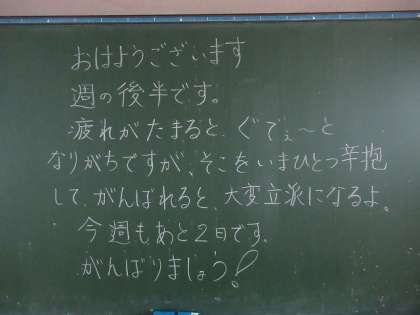 おはようございます
週の後半です。
疲れがたまると、ぐでぇ〜と
なりがちですが、そこをいまひとつ辛抱
して、がんばれると、大変立派になるよ。
今週もあと2日です。
がんばりましょう!